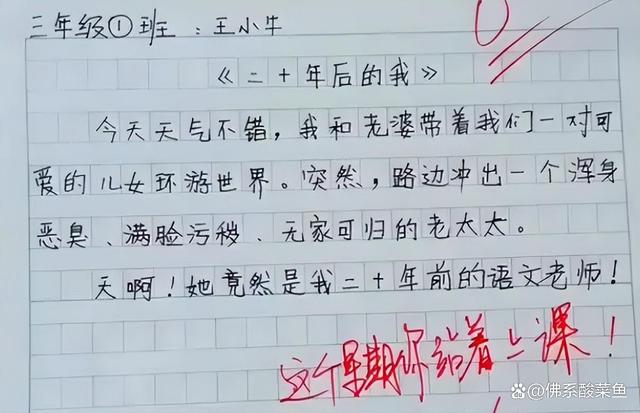 三年级①班：王小牛
0
《二十年后的我》
今天天气不错，我和老婆带着我们一对可
爱的儿女环游世界。突然，路边冲出一个浑身
恶臭、满脸污秽、无家可归的老太太。
天啊！她竟然是我二十年前的语文老师！
这个星期你站着上课！
@佛系酸菜鱼